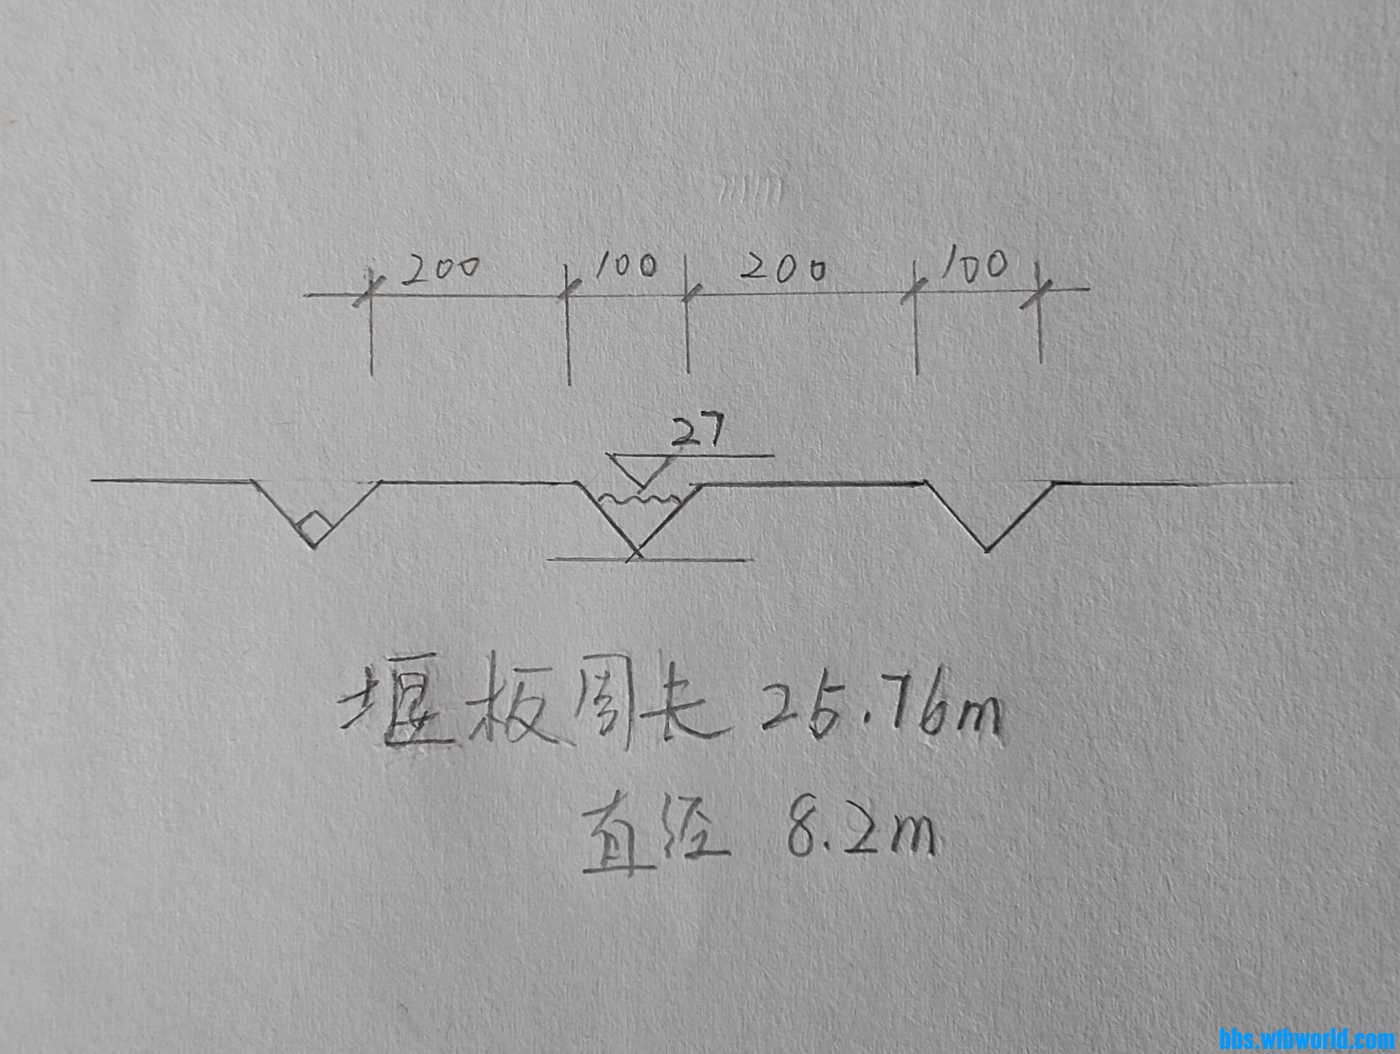 mm
200 100 200 100
27
堰板周长 25.76m
直径 8.2m
bbs.wtbworld.com